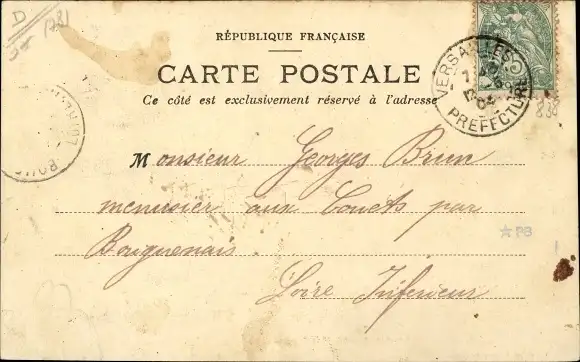 D
(78)
RÉPUBLIQUE FRANÇAISE
CARTE POSTALE
Ce côté est exclusivement réservé à l'adresse
VERSAILLES
04
PREFECTURE
Monsieur Georges Brun
menuisier aux Couets par
Bouguenais
Loire Inferieur
PB